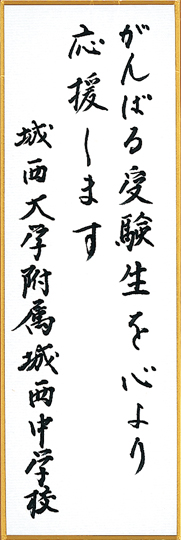 がんばる受験生を心より
応援します
城西大学附属城西中学校